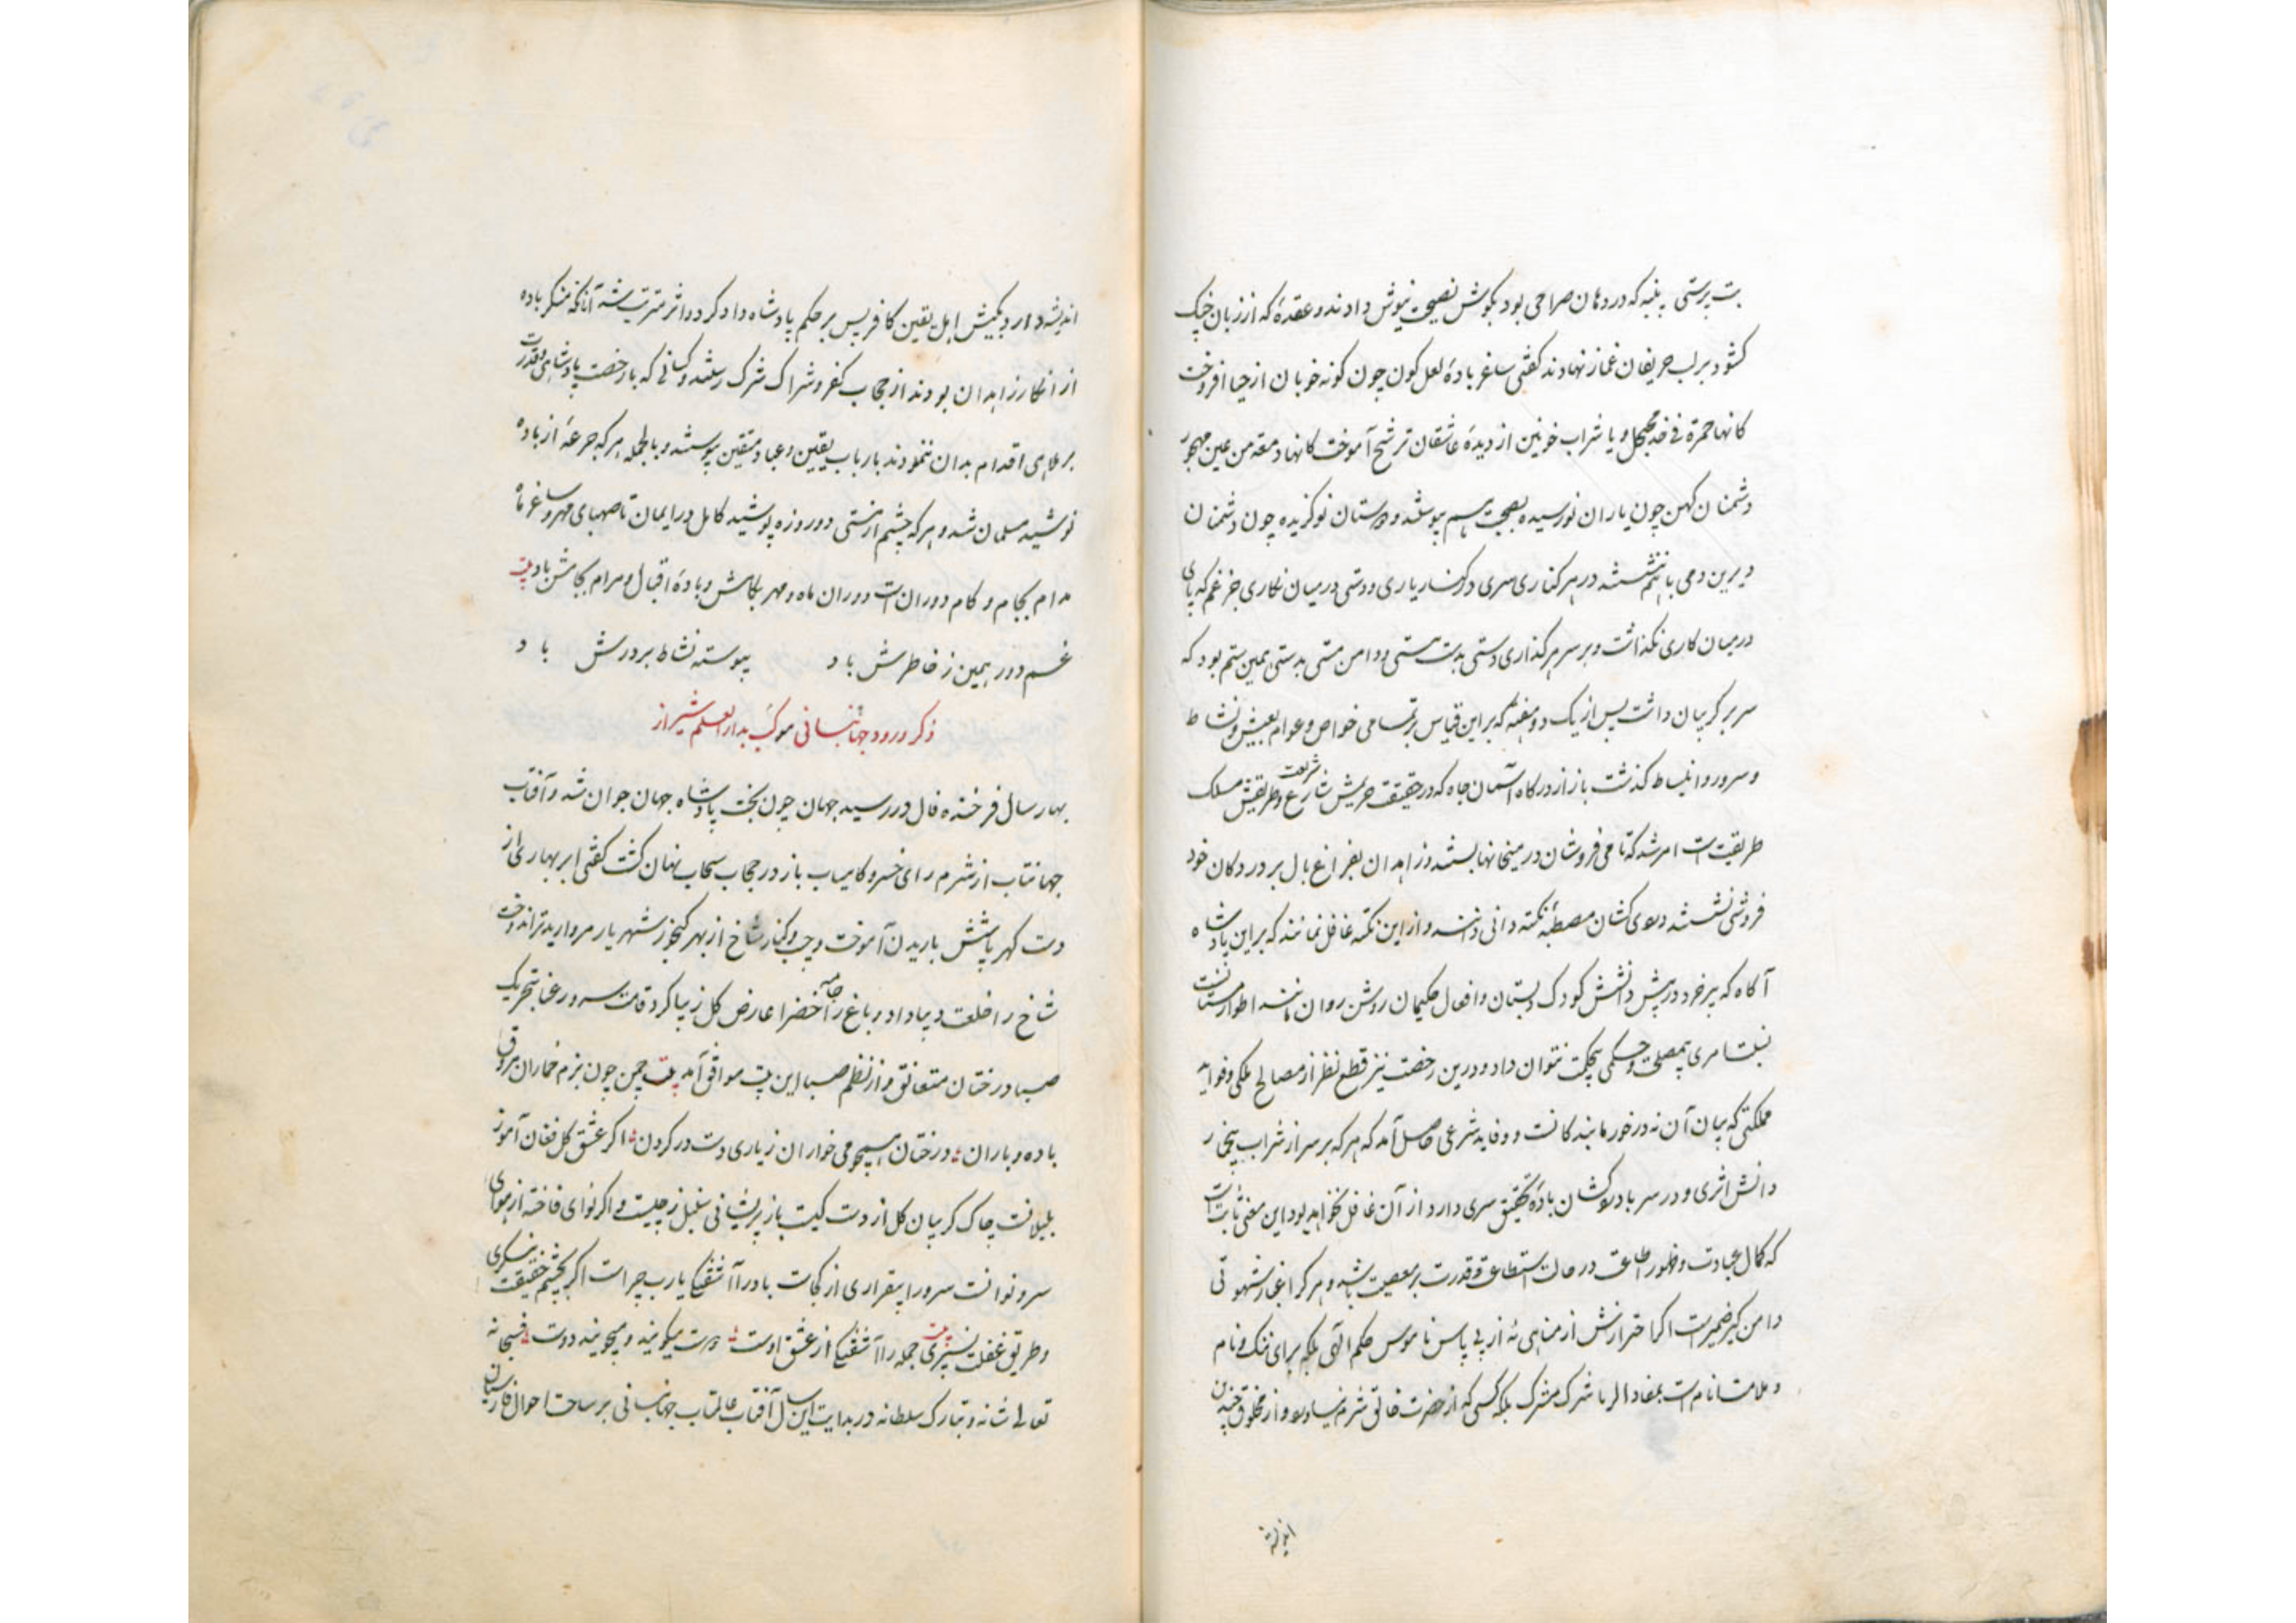 بت پرستی پنبه که در دهان صراحی بود بگوش نصیحت نیوش دادند و عقدهٔ که از زبان چنگ
کشود بر لب حریفان غماز نهادند کفتی ساغر بادهٔ لعل کون چون کونه خوبان از حیا افروخت
کانها حمرة فی خد مخجل و یا شراب خونین از دیدهٔ عاشقان ترشح آموخت کانها دمعة من عین مهجور
دشمنان کهن چون یاران نورسیده بصحبت هم پیوستند و دوستان نو کزیده چون دشمنان
دیرین دمی با هم ننشستند در هر کناری سری در کنار یاری و دستی در میان نکاری جز غم که پای
در میان کاری نکذاشت و بر سر هر کذاری دستی بدست مستی و دامن مستی بدستی همین ستم بود که
سر بر کریبان داشت پس از یک دو هفته که بر این قیاس بر تمامی خواص و عوام بعیش و نشاط
و سرور و انبساط کذشت باز از درکاه آسمان جاه که در حقیقت حریمش شارع شریعت و طریقش مسلک
طریقت است امر شد که تا می فروشان در میخانها بستند و زاهدان بفراغ بال بر در دکان خود
فروشی نشستند دردی کشان مصطبه نکته دانی دانند و از این نکته غافل نمانند که بر این پادشاه
آکاه که پیر خرد در پیش دانشش کودک دبستان و افعال حکیمان روشن روان مانند اطوار مستانست
نسبت امری بیمصلحت و حکمی بیحکمت نتوان داد و درین رخصت نیز قطع نظر از مصالح ملکی و فواید
مملکتی که بیان آن نه در خور ما بندکانست دو فایده شرعی حاصل آمد که هر که بر سر از شراب بیخمار
دانش اثری و در سر باده کشان بادهٔ تحقیق سری دارد از آن غافل نخواهد بود این معنی ثابت است
که کمال عبادت و ظهور اطاعت در حالت استطاعت و قدرت بر معصیت باشد و هر کرا غبار شهوتی
دامن کیر ضمیر است اکر احترازش از مناهی نه از پی پاس ناموس حکم الهی بلکه برای ننک و نام
و ملامت انام است بمفاد الریا شرک مشرک بلکه کسی که از حضرت خالق شرم نیاورد و از مخلوق چندین
اندیشه
اندیشه دارد بکیش اهل یقین کافر پس بر حکم پادشاه دادکر دو اثر مترتب شد آنانکه منکر باده
از انکار زاهدان بودند از حجاب کفر و شراک شرک رستند و کسانی که با رخصت پادشاهی و قدرت
بر ملاهی اقدام بدان ننمودند بارباب یقین و عباد متقین پیوستند و بالجمله هر که جرعهٔ از باده
نوشید مسلمان شد و هر که چشم از مستی دو روزه پوشید کامل در ایمان تا صهبای مهر و ساغر ماه
مدام بجام و کام دوران است دوران ماه و مهر بکامش و بادهٔ اقبال و مرام بجامش باد بیت
غم دور همین ز خاطرش باد پیوسته نشاط بر درش باد
ذکر ورود جهانبانی موکب بدار العلم شیراز
بهار سال فرخنده فال در رسید جهان چون بخت پادشاه جهان جوان شد و آفتاب
جهانتاب از شرم رای خسرو کامیاب باز در حجاب سحاب نهان کشت کفتی ابر بهاری از
دست کهر پاشش باریدن آموخت و جیب و کنار شاخ از بهر کنجور شهریار مروارید تر اندوخت
شاخ را خلعت دیبا داد و باغ را جامه خضرا عارض کل زیبا کرد و قامت سرو رعنا بتحریک
صبا درختان متعانق و از نظم صبا این بیت موافق آمد بیت چمن چون بزم خماران بروق
باده و باران درختان همچو می خواران ز یاری دست در کردن اکر عشق کل فغان آموز
بلبلانست چاک کریبان کل از دست کیست باز پریشانی سنبل ز چیست و اکر نوای فاخته از هوای
سرو نوانست سرو را بیقراری از کجاست باد را آشفتکی یارب چراست اکر بچشم حقیقت بنکری
و طریق غفلت نسپری بیت جمله را آشفتکی از عشق اوست دوست میکویند و میجویند دوست فسبحانه
تعالی شانه و تبارک سلطانه در بدایت این سال آفتاب عالمتاب جهانبانی بر ساحت احوال فارسیان